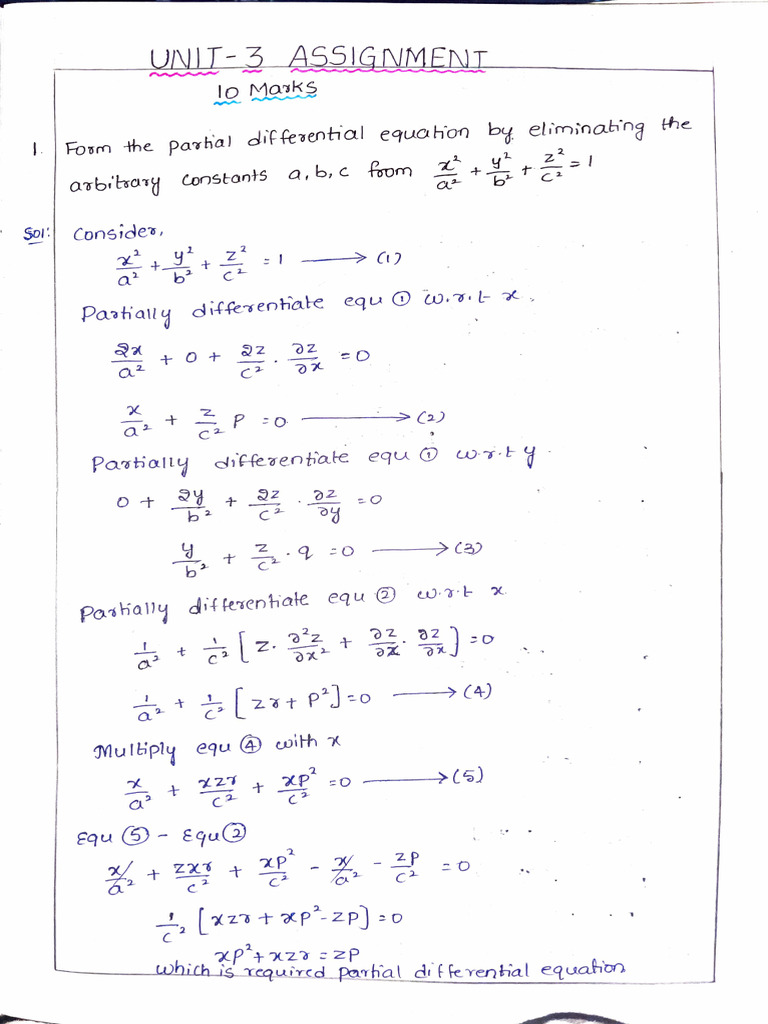 UNIT-3 ASSIGNMENT
10 Marks
1. Form the partial differential equation by eliminating the
arbitrary constants a, b, c from x²/a² + y²/b² + z²/c² = 1
Sol: Consider,
x²/a² + y²/b² + z²/c² = 1 ⟶ (1)
Partially differentiate equ ① w.r.t x.
2x/a² + 0 + 2z/c² · ∂z/∂x = 0
x/a² + z/c² P = 0 ⟶ (2)
Partially differentiate equ ① w.r.t y.
0 + 2y/b² + 2z/c² · ∂z/∂y = 0
y/b² + z/c² · q = 0 ⟶ (3)
Partially differentiate equ ② w.r.t x
1/a² + 1/c² [z · ∂²z/∂x² + ∂z/∂x · ∂z/∂x] = 0
1/a² + 1/c² [zr + P²] = 0 ⟶ (4)
Multiply equ ④ with x
x/a² + xzr/c² + xp²/c² = 0 ⟶ (5)
Equ ⑤ - Equ ②
x/a² + zxr/c² + xp²/c² - x/a² - zp/c² = 0
1/c² [xzr + xp² - zp] = 0
xp² + xzr = zp
which is required partial differential equation